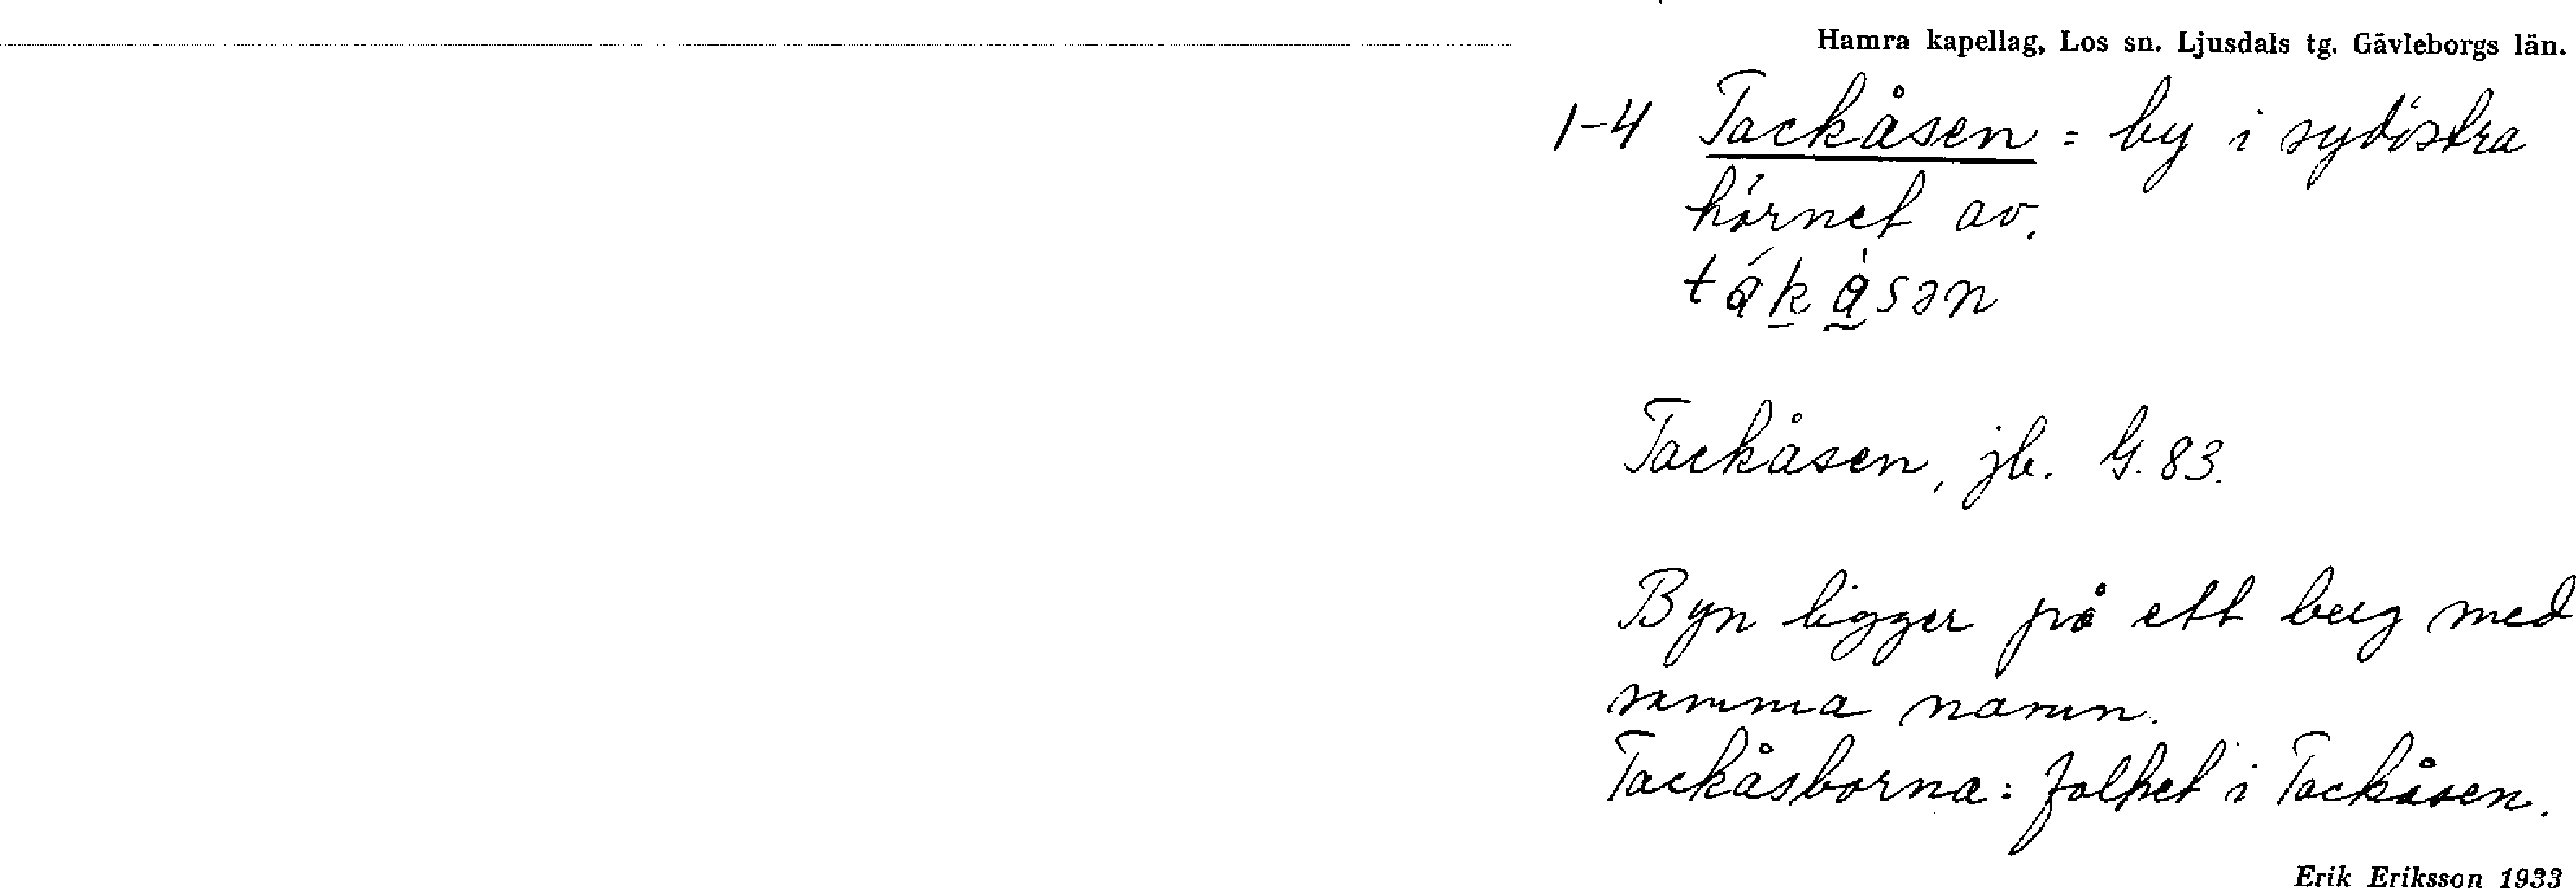 Hamra kapellag, Los sn. Ljusdals tg. Gävleborgs län.
1-4 Tackåsen = by i sydöstra
hörnet av.
tákåsən
Tackåsen, jb. G. 83.
Byn ligger på ett berg med
samma namn.
Tackåsborna: folket i Tackåsen.
Erik Eriksson 1933